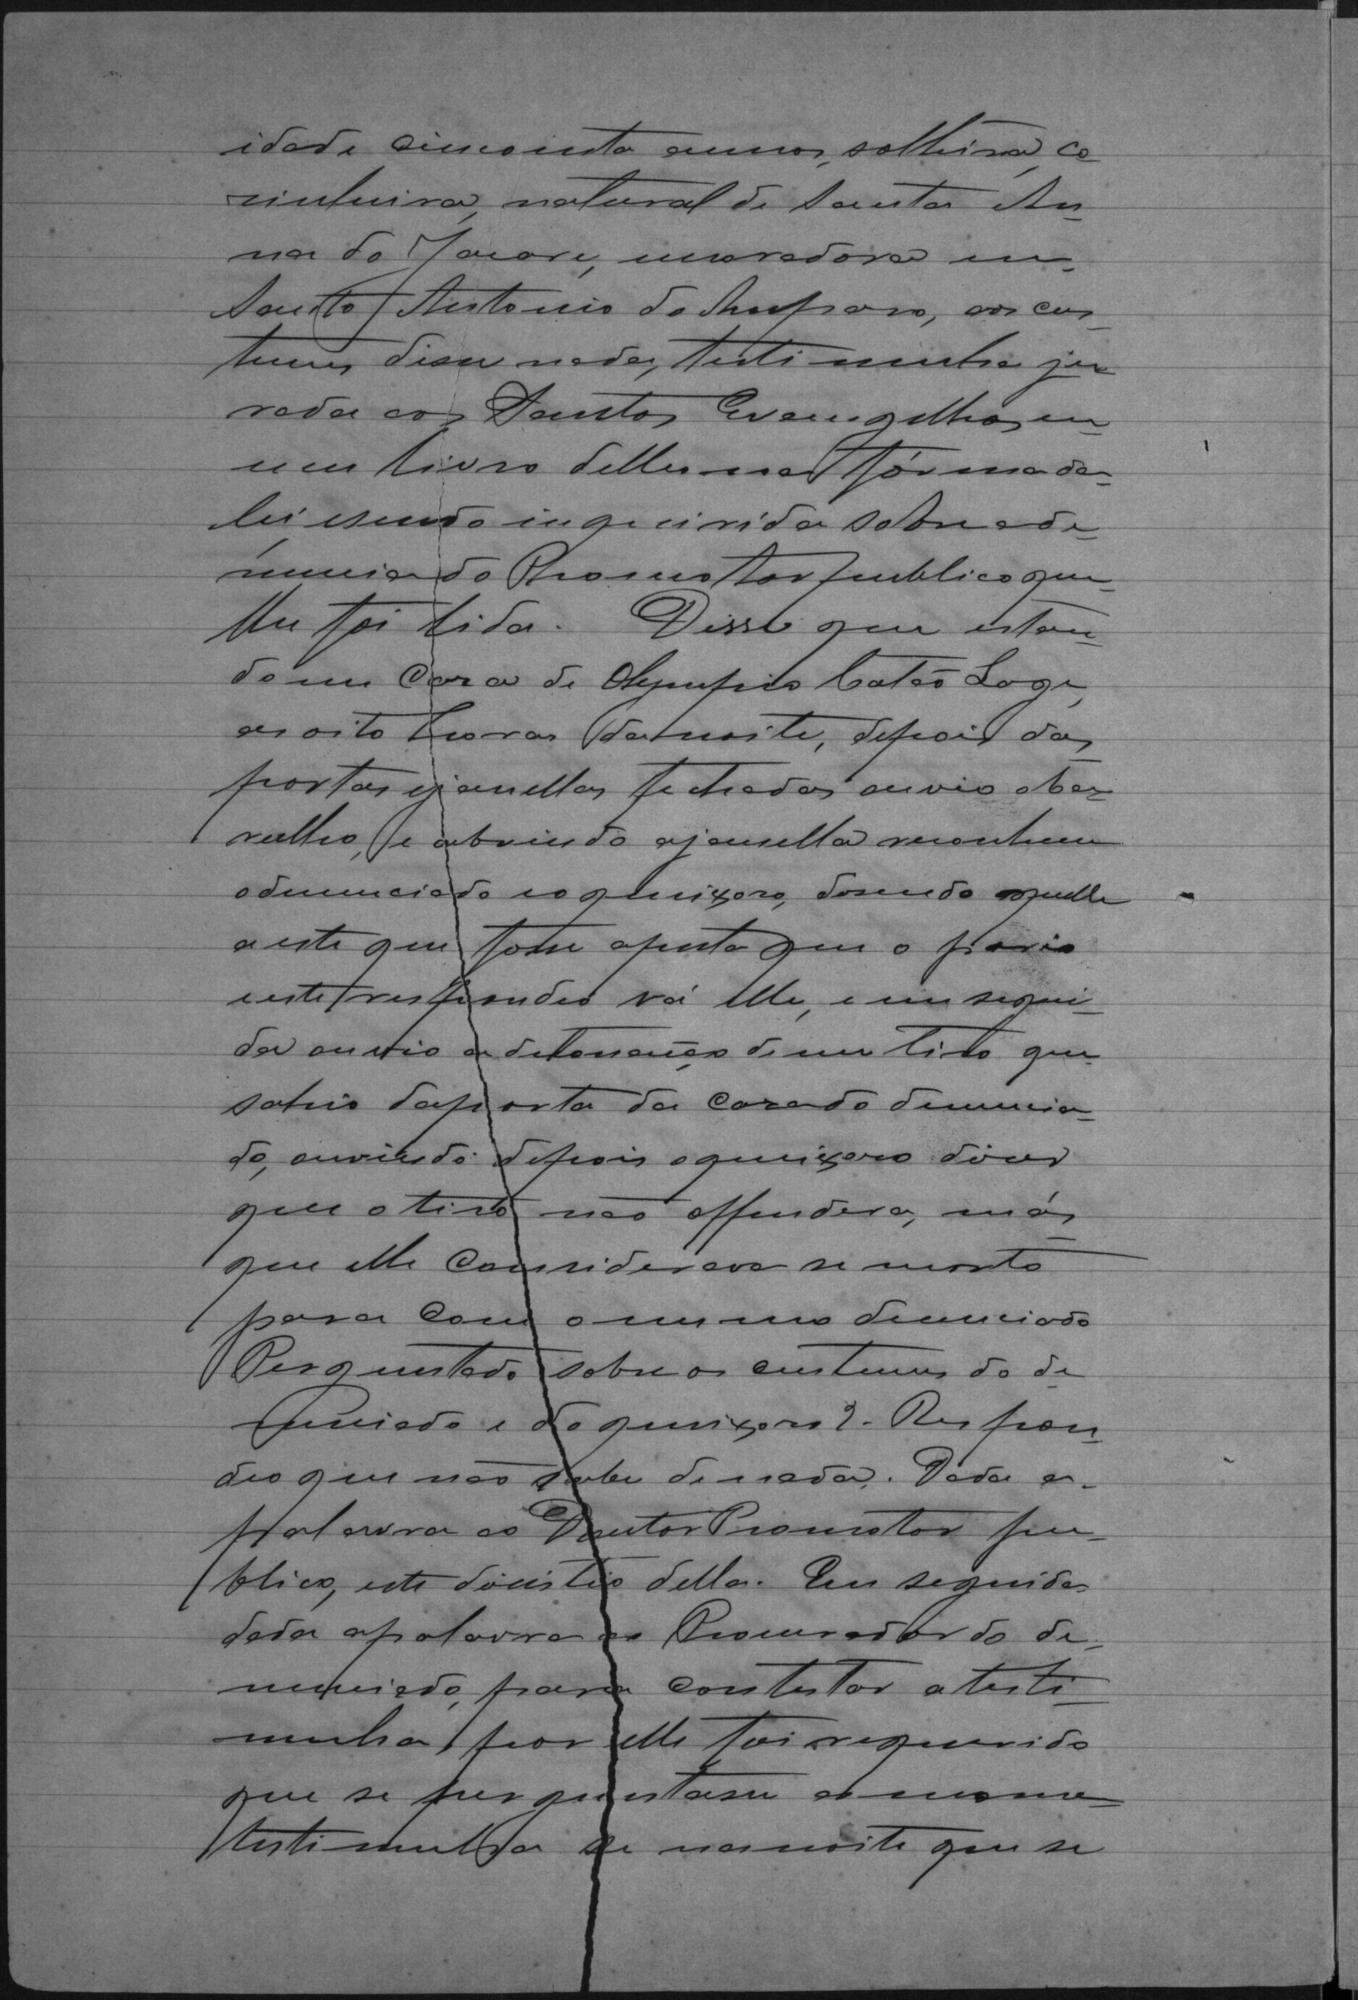 idade cincoenta annos, solteira, co
zinheira, natural de Santa An-
na do Jacaré, moradora em
Santo Antonio do Amparo, aos cos-
tumes disse nada, testimunha ju-
rada aos Santos Evangelhos em
um livro delles na fórma da
lei e sendo inquirida sobre a de-
nuncia do Promotor publico que
lhe foi lida. Disse que estan-
do em casa de Olympio Catão Lage,
as oito horas da noite, depois das
portas e janellas fechadas ouvio o ba-
rulho, e abrindo a janella reconheceu
o denunciado e o queixoso, disendo aquelle
a este que fosse
e este respondeo vá elle, e em segui-
da ouvio a detonação de um tiro que
sahio da porta da casa do denuncia-
do, ouvindo depois o queixoso diser
que o tiro não offendera, más
que elle considerava se morto
para com o mesmo denunciado
Perguntado sobre os custumes do de
nunciado e do queixoso? Respon-
deo que não sabe de nada. Dada a
palavra ao Doutor Promotor pu-
blico, este disistio della. Em seguida
dada a palavra ao Procurador do de-
nunciado, para contestar a testi-
munha, por elle foi requerido
que se perguntasse a mesma
testimunha se na noite que se